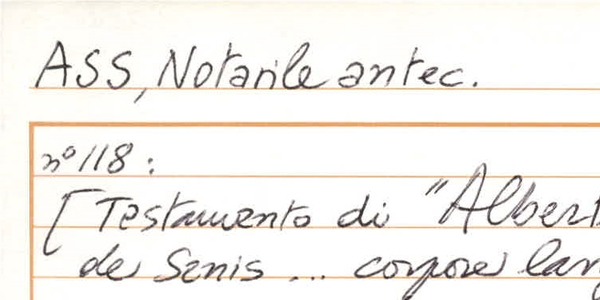 ASS, Notarile antec.
n° 118 :
[ Testamento di "Albert
de Senis ... corpore lan